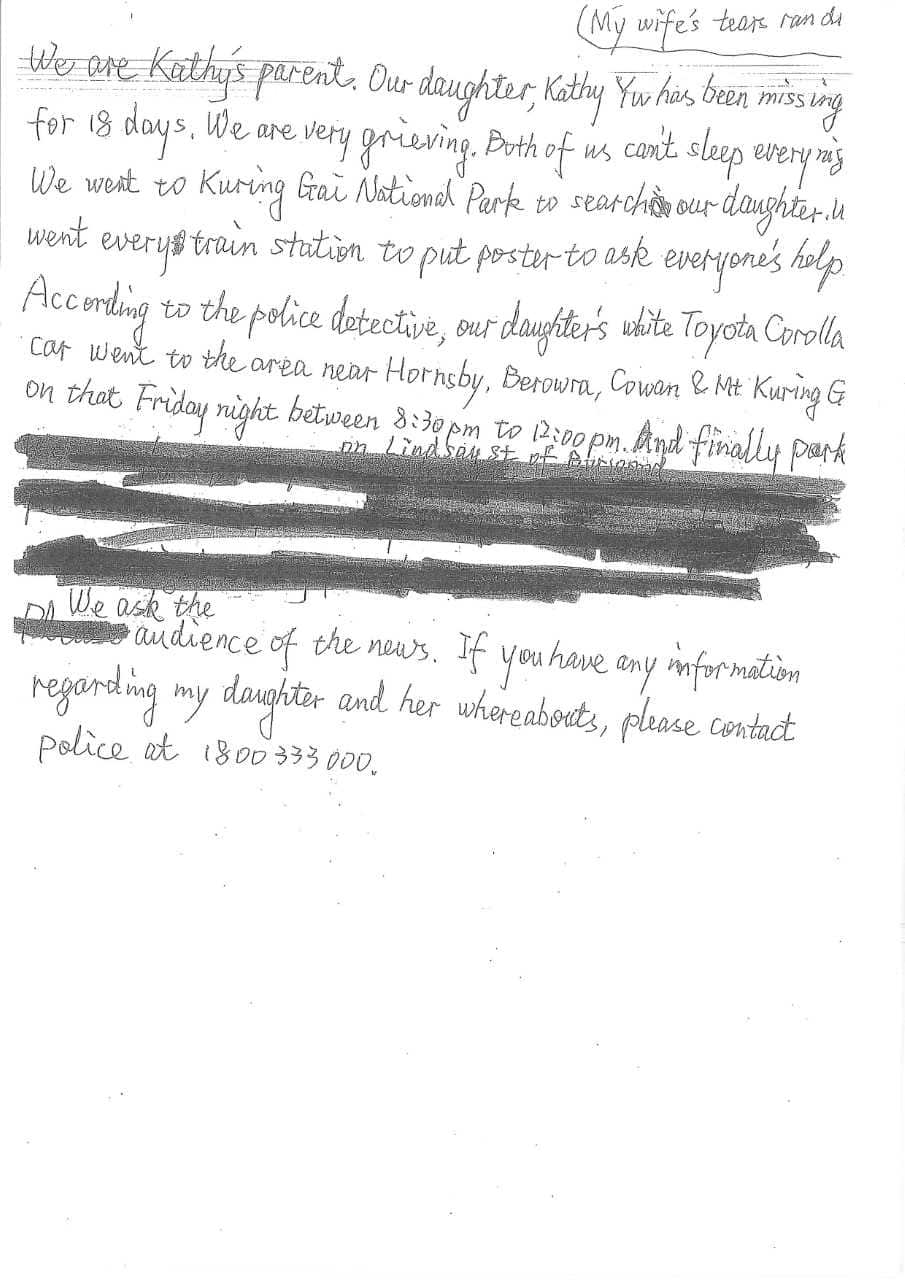 (My wife's tears ran
We are Kathy's parent. Our daughter, Kathy Yu has been missing
for 18 days. We are very grieving. Both of us can't sleep every
We went to Kuring Gai National Park to search our daughter.
went every train station to put poster to ask everyone's help
According to the police detective, our daughter's white Toyota Corolla
car went to the area near Hornsby, Berowra, Cowan & Mt Kuring G
on that Friday night between 8:30pm to 12:00pm. And finally park
on Lindsay st of
We ask the
audience of the news. If you have any information
regarding my daughter and her whereabouts, please contact
police at 1800 333 000.